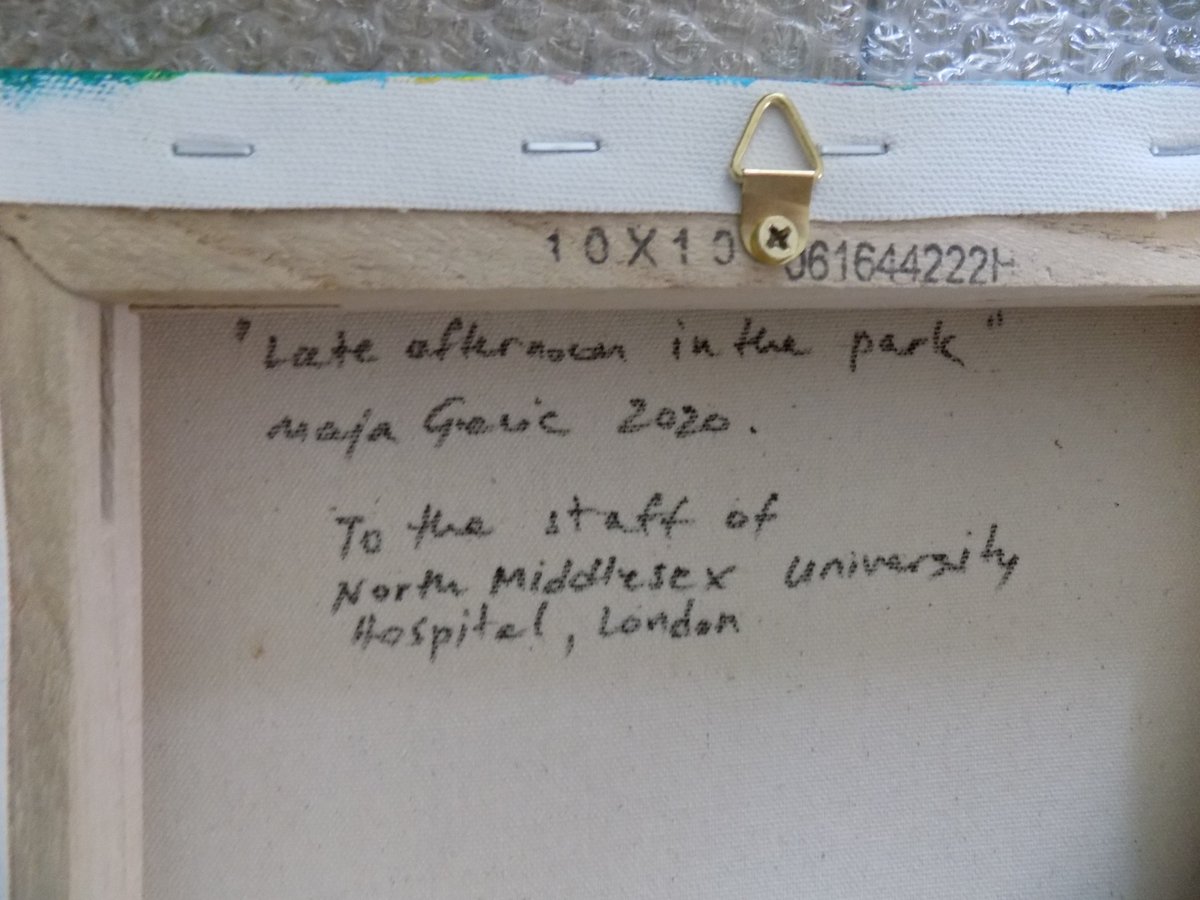 10X10 061644222H
"Late afternoon in the park"
Maja Gecic 2020.
To the staff of
North Middlesex University
Hospital, London